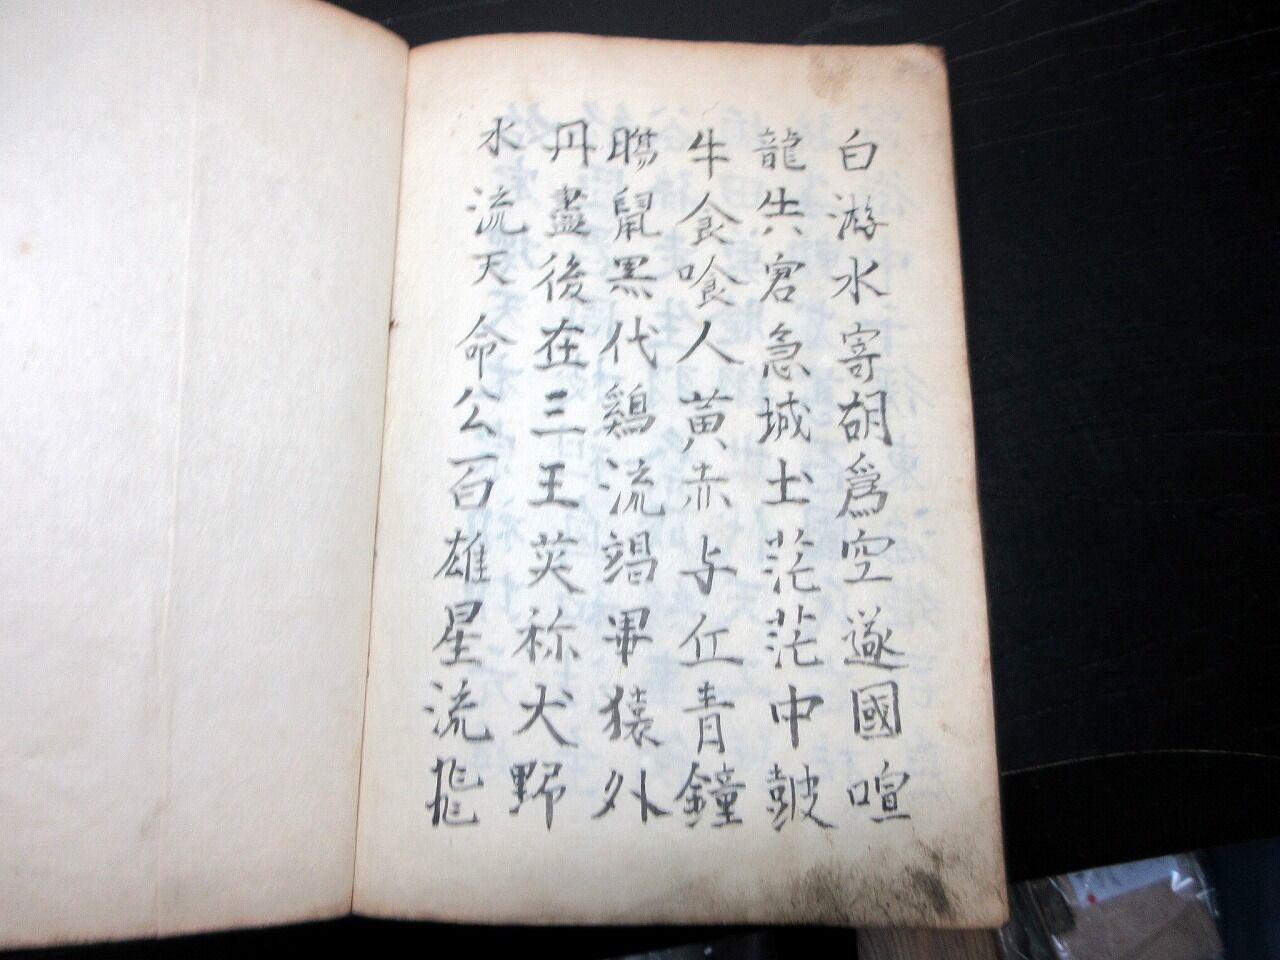 白游水寄胡爲空遂國喧
龍失窘急城土茫茫中鼓
牛食喰人黄赤与丘青鐘
腸鼠黒代鶏流竭畢猿外
丹盡後在三王英称犬野
水流天命公百雄星流飛